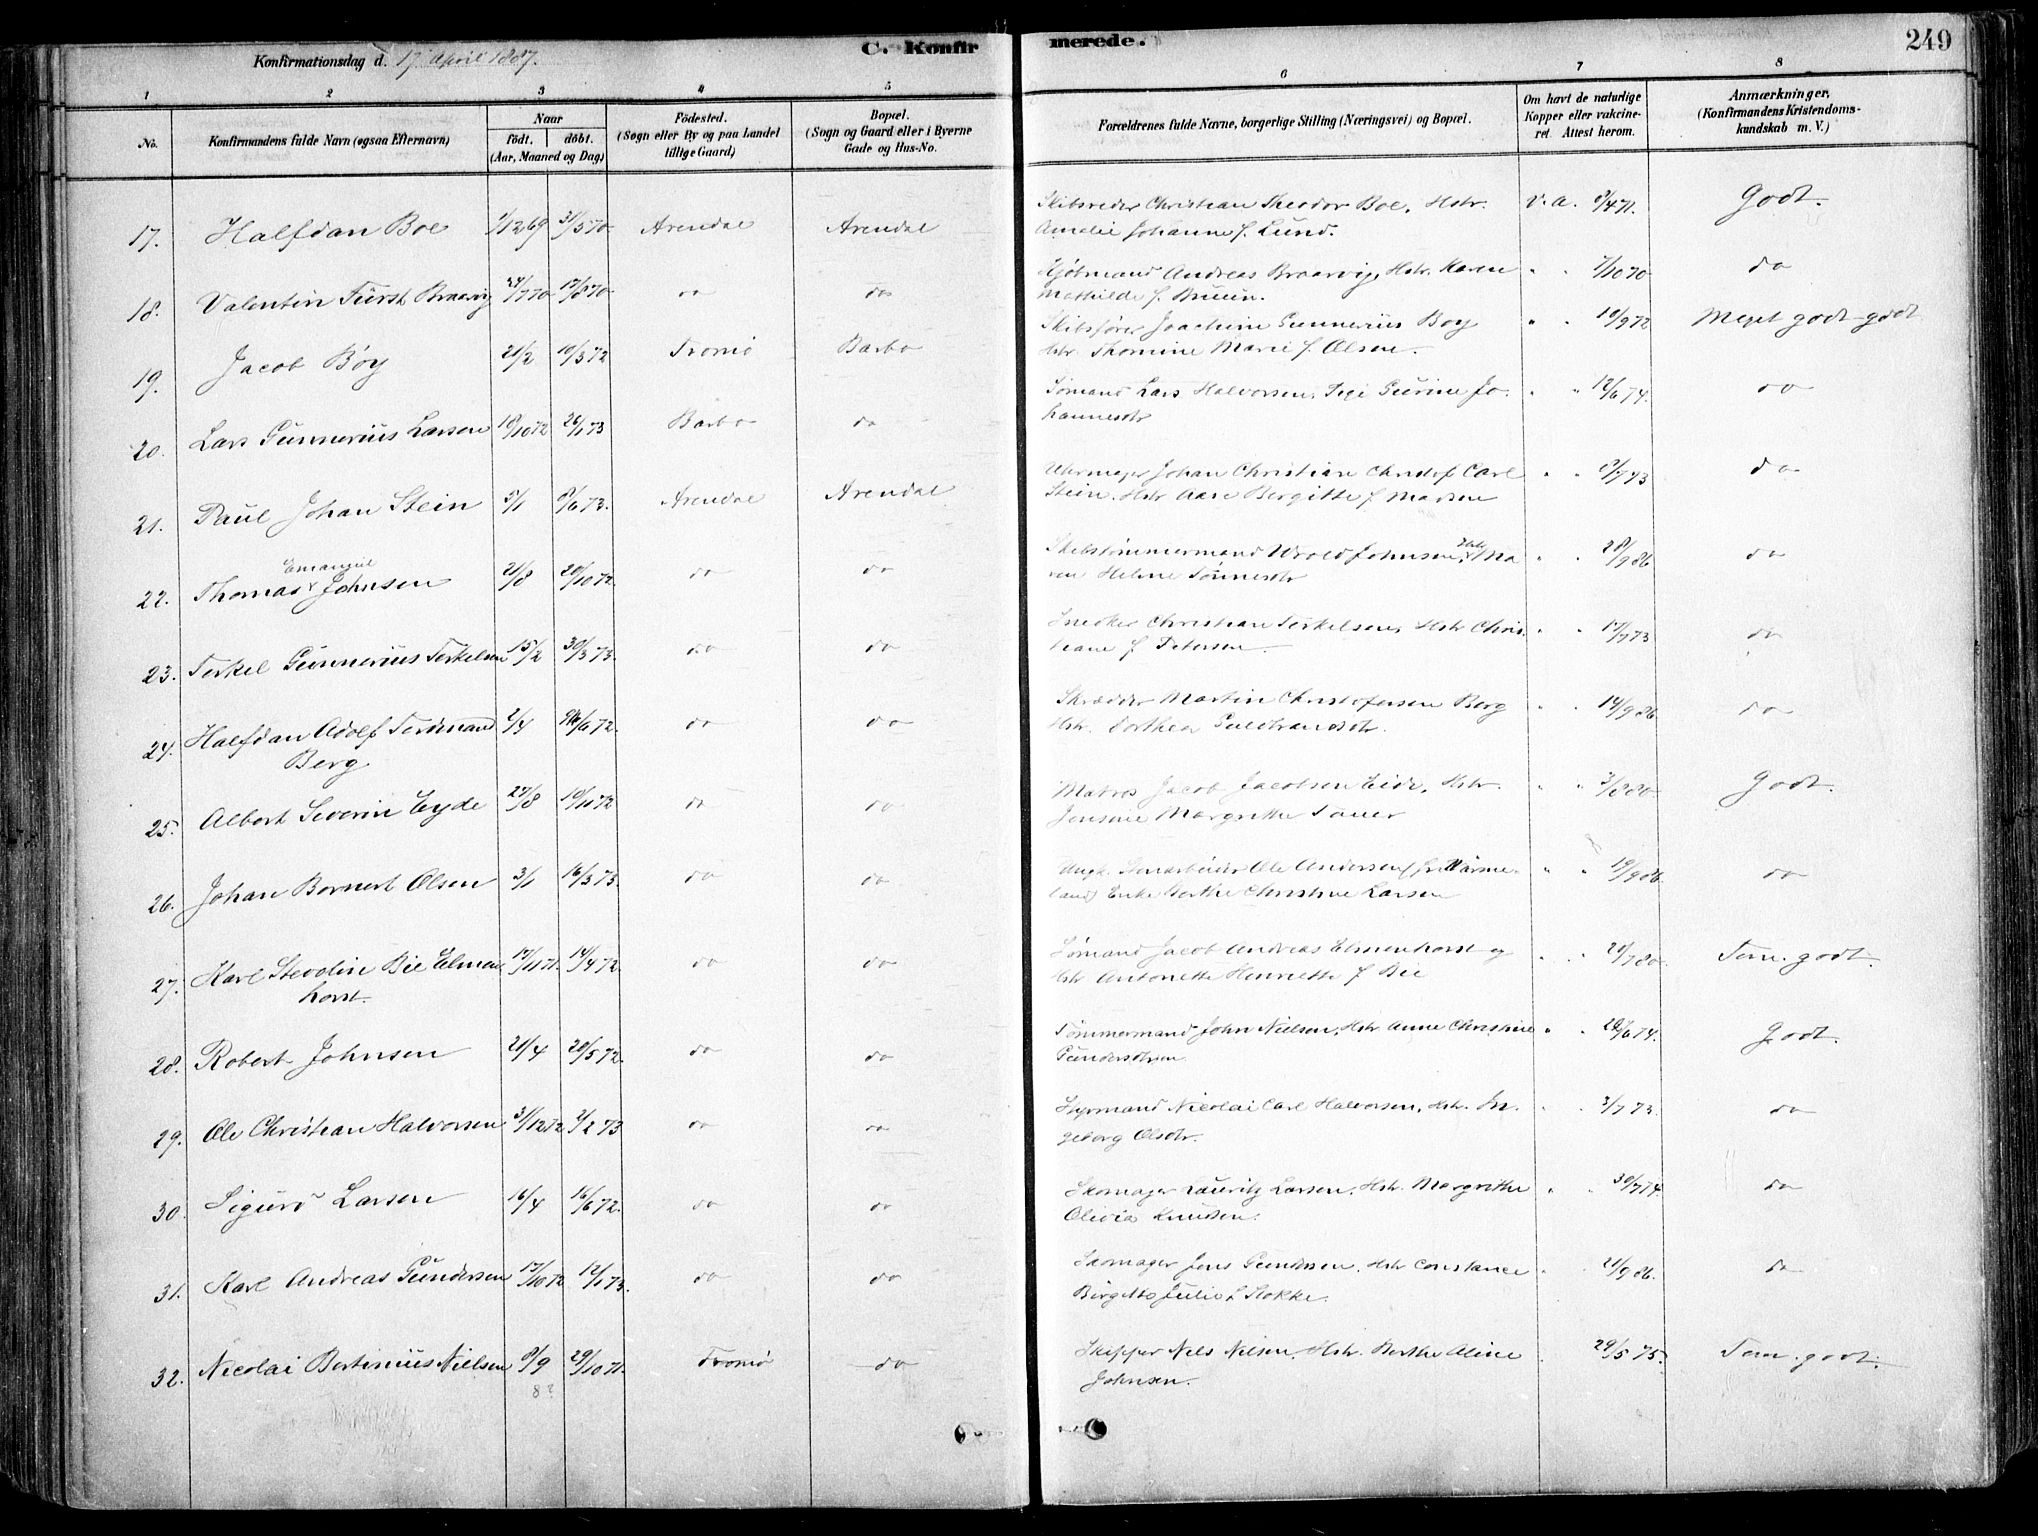 249
Konfirmationsdag d. 17 April 1887.
C. Konfirmerede.
1 2 3 4 5 6 7 8
No.
Konfirmandens fulde Navn (ogsaa Efternavn)
Naar
født. døbt.
(Aar, Maaned og Dag)
Fødested.
(Sogn eller By og paa Landet
tillige Gaard)
Bopæl.
(Sogn og Gaard eller i Byerne
Gade og Hus-No.
Forældrenes fulde Navne, borgerlige Stilling (Næringsvei) og Bopæl.
Om havt de naturlige
Kopper eller vakcine-
ret. Attest herom.
Anmærkninger.
(Konfirmandens Kristendoms-
kundskab m. V.)
17. Halfdan Boe 1/12 69 31/5 70 Arendal Arendal Skibsreder Christian Theodor Boe, Hstr. v. a. 8/4 71. Godt.
Amalie Johanne f. Lund.
18. Valentin Fürst Braavig 24/7 70 17/8 70 do do Kjøbmand Andreas Braarvig, Hstr. Karen " " 7/10 70 do
Mathilde f. Bruun.
19. Jacob Bøy 21/2 10/3 72 Tromø Barbo Skibsfører Joachim Gunnerius Boy " " 10/9 72 Meget godt-godt
Hstr. Thomine Marie f. Olsen.
20. Lars Gunnerius Larsen 18/10 72 26/1 73 Barbo do Sømand Lars Halvorsen, Pige Gurine Jo- " " 12/6 74. do
hannesdtr
21. Paul Johan Stein 5/1 8/6 73. Arendal Arendal Uhrmager Johan Christian Christof Carl " " do
Stein, Hstr Aase Bergitte f. Madsen
22. Thomas Emanuel Johnsen 21/8 20/10 72. do do Skibstømmermand Johnsen, Hstr Ma- " " 28/9 86 do
ren Helene Tønnesdtr
23. Terkel Gunnerius Terkelsen 15/2 30/3 73. do do Snedker Christian Terkelsen, Hstr Chris- " " 17/7 73 do
tiane f. Petersen
24. Halfdan Adolf Ferdinand 2/4 /6 72. do do Skrædder Martin Christofersen Berg " " 14/9 86 do
Berg Hstr. Dorthea Guldbrandsdtr.
25. Albert Severin Eyde 27/8 10/11 72 do do Matros Jacob Jacobsen Eide, Hstr. " " 3/8 80. Godt.
Jensine Margrethe
26. Johan Bernert Olsen 3/1 16/3 73. do do Ole Andersen (fr. Værme- " " 19/9 86. do
land) Enke Berthe Christine Larsen
27. Karl Stevelin Bie Elmen- 17/11 71. 14/4 72. do do Sømand Jacob Andreas Elmenhorst og " " 20/7 80. Tem. godt.
horst. Hstr Antonette Henriette f Bie
28. Robert Johnsen 21/4 20/5 72. do do Tømmermand John Nielsen, Hstr Anne Christine " " /6 74. Godt.
Gundersen
29. Ole Christian Halvorsen 31/12 72 2/2 73 do do Styrmand Nicolai Carl Halvorsen, Hstr. In- " " 3/7 73. do
geborg Olsdtr.
30. Sigurd Larsen 16/4 16/6 72. do do Skomager Lauritz Larsen, Hstr. Margrethe " " 30/7 74. do
Olivia Knudsen.
31. Karl Andreas Gundersen 17/10 72 12/1 73. do do Skomager Jens Gundersen, Hstr Constance " " 21/9 86. do
Birgitte Julie f. Stokke.
32. Nicolai Bertinius Nielsen 9/9 29/10 71. Tromø do Skipper Nels Nilsen, Hstr. Berthe Aline " " 29/5 75. Tem. godt.
8? Johnsen.